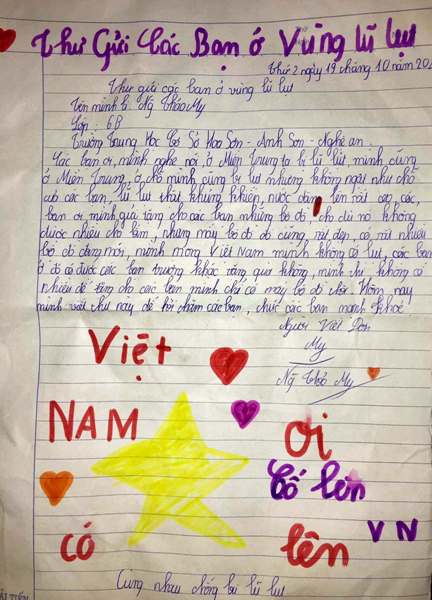 Thư Gửi Các Bạn ở Vùng lũ lụt
Thứ 2 ngày 19 tháng 10 năm 20
Thư gửi các bạn ở vùng lũ lụt
Tên mình là Ng Thảo My
Lớp 6B
Trường Trung Học Cơ Sở Hoa Sơn - Anh Sơn - Nghệ an
Các bạn ơi, mình nghe nói ở Miền Trung ta bị lũ lụt, mình cũng
ở Miền Trung, ở chỗ mình cũng bị lụt nhưng không ngặt như chỗ
của các bạn, lũ lụt thật khủng khiếp, nước dâng lên rất cao, các
bạn ơi mình gửi tặng cho các bạn những bộ đồ cho dù nó không
được nhiều cho lắm, nhưng mấy bộ đồ đó cũng rất đẹp, có rất nhiều
bộ đồ đang mới, mình mong Việt Nam mình không có lụt, các bạn
ở đó có được các bạn trường khác tặng quà không, mình thì không có
nhiều để tặng cho các bạn mình chỉ có mấy bộ đồ thôi. Hôm nay
mình viết thư này để hỏi thăm các bạn, chúc các bạn mạnh khoẻ
Người Viết Đơn
My
Ng Thảo My
Việt
NAM ơi
cố lên
có lên VN
Cùng nhau chống bão lũ lụt